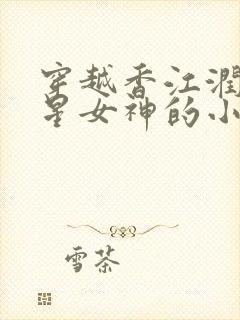 穿越香江潤
星女神的小
雪茶